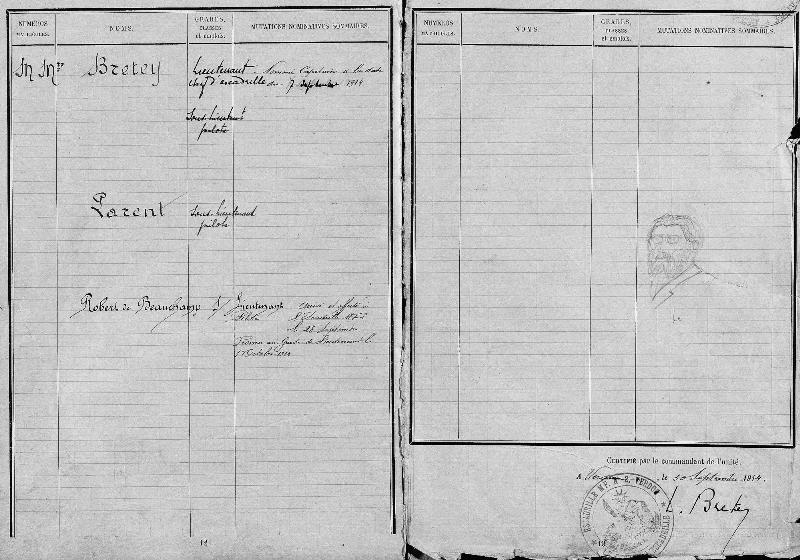 NUMÉROS
MATRICULES.
NOMS.
GRADES,
CLASSES
et emplois.
MUTATIONS NOMINATIVES SOMMAIRES.
M Mrs Bretey
Lieutenant
chef d'escadrille
Nommé Capitaine à la date
du 7 Septembre 1914
Sous-Lieutenant
pilote
Parent
Sous-Lieutenant
pilote
Robert de Beauchamp
S/Lieutenant
Pilote
et affecté à
l'Escadrille
le 28 Septembre
Promu au Grade de Lieutenant le
1 Octobre 1914
12
NUMÉROS
MATRICULES.
NOMS.
GRADES,
CLASSES
et emplois.
MUTATIONS NOMINATIVES SOMMAIRES.
CERTIFIÉ par le commandant de l'unité.
A Verdun, le 30 Septembre 1914.
L. Bretey
ESCADRILLE M.F. N° 2. VERDUN